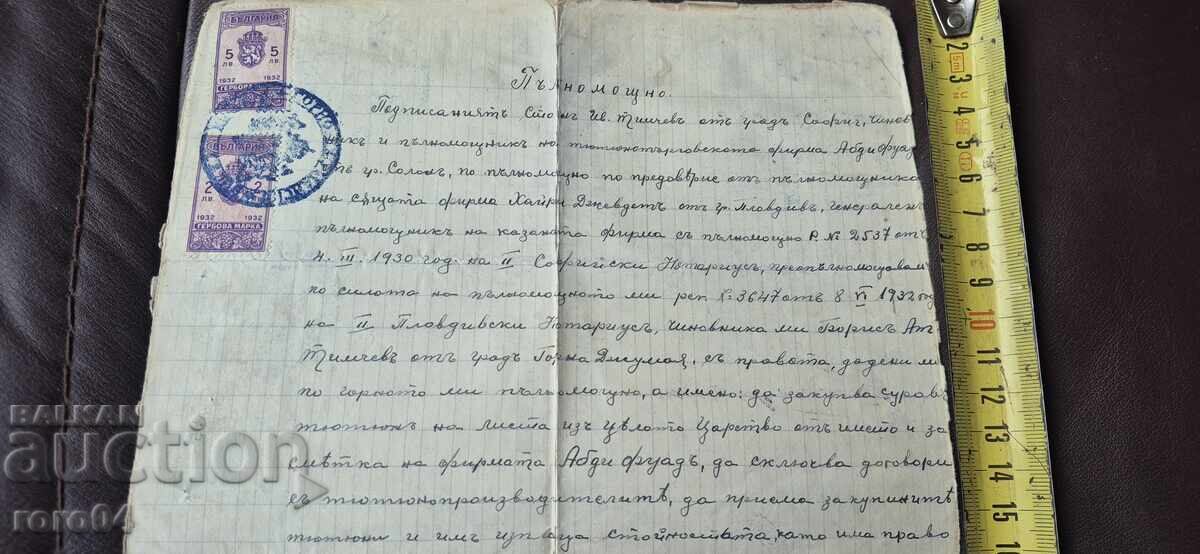 БЪЛГАРИЯ
5 5
ЛВ. ЛВ.
1932 1932
ГЕРБОВА МАРКА
БЪЛГАРИЯ
2 2
ЛВ.
1932 1932
ГЕРБОВА МАРКА
Пълномощно.
Подписаниятъ Стоянъ Ив. Тимчевъ отъ градъ София, чинов
никъ и пълномощникъ на тютюнотърговската фирма Абди Фуадъ
гр. Солонъ, по пълномощно по предоверие отъ пълномощника
на сѫщата фирма Хайри Джевдетъ отъ гр. Пловдивъ, генераленъ
пълномощникъ на казаната фирма съ пълномощно Р. № 2537 отъ
4. III. 1930 год. на II Софийски Нотариусъ, препълномощавамъ
по силата на пълномощното ми рег. № 3647 отъ 8 VI 1932 год
на II Пловдивски Нотариусъ, чиновника ми Борисъ Ат.
Тимчевъ отъ градъ Горна Джумая, съ правата, дадени ми
по горното ми пълномощно, а имено: да закупва суровъ
тютюнъ на листа изъ цѣлото Царство отъ името и за
смѣтка на фирмата Абди Фуадъ, да сключва договори
съ тютюнопроизводителитѣ, да приема закупинитѣ
тютюни и имъ изплаща стойностьта, като има право
2 3 4 5 6 7 8 9 10 11 12 13 14 15
5m
BALKAN
auction
roro84